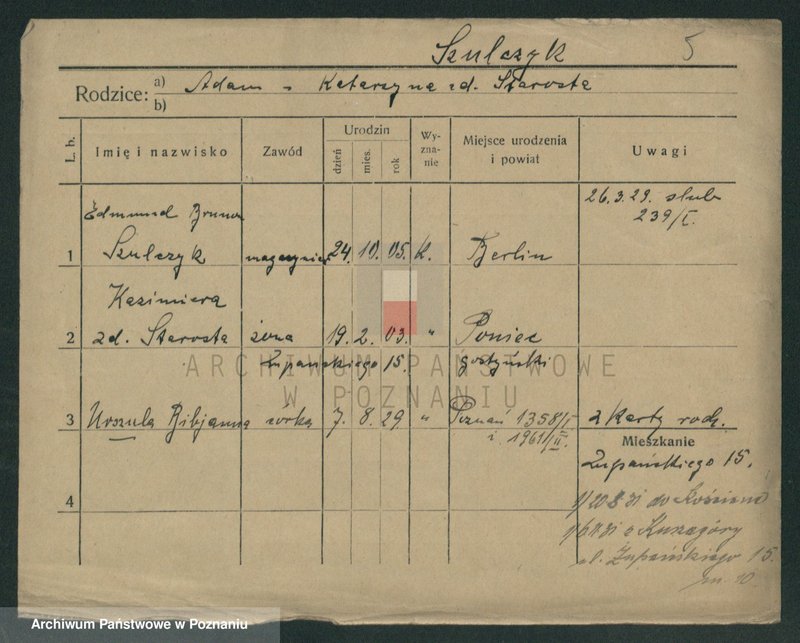 Szulczyk 5
Rodzice: a) b) Adam - Katarzyna zd. Starosta
L. b. Imię i nazwisko Zawód Urodzin dzień mies. rok Wyznanie Miejsce urodzenia i powiat Uwagi
26.3.29. slub
239/I.
Edmund Brunon
1 Szulczyk magazynier 24. 10. 05. k. Berlin
Kazimiera
2 zd. Starosta żona 19. 2. 03. " Poniec
Żupańskiego 15. gostyński
ARCHIWUM PAŃSTWOWE
W POZNANIU
3 Urszula Bibjanna córka 7. 8. 29 " Poznań 1358/I z Karty rodz.
i 1961/II.
Mieszkanie
Żupańskiego 15.
4
1/20 8 31 do Kościana
z
ul. Żupańskiego 15.
m. 10
Archiwum Państwowe w Poznaniu